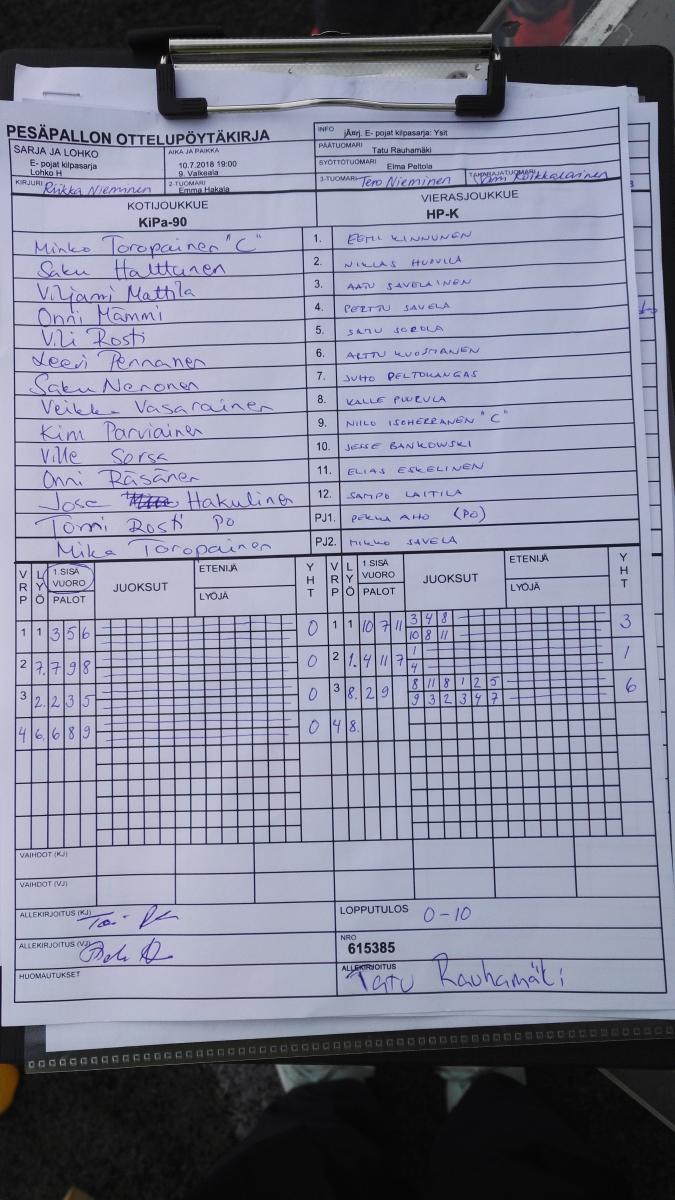 PESÄPALLON OTTELUPÖYTÄKIRJA
INFO jÄ¤rj. E- pojat kilpasarja: Ysit
PÄÄTUOMARI Tatu Rauhamäki
SYÖTTÖTUOMARI Elma Peltola
SARJA JA LOHKO
E- pojat kilpasarja
Lohko H
AIKA JA PAIKKA
10.7.2018 19:00
9. Valkeala
KIRJURI Riikka Nieminen
2-TUOMARI Emma Hakala
3-TUOMARI Tero Nieminen
TAKARAJATUOMARI
KOTIJOUKKUE VIERASJOUKKUE
KiPa-90 HP-K
Minko Toropainen "C" 1. EETU KINNUNEN
Saku Halttunen 2. NIKLAS HUOVILA
Viljami Mattila 3. AATU SAVELAINEN
Onni Mämmi 4. PERTTU SAVELA
Vili Rosti 5. SAMU SOROLA
Leevi Pennanen 6. ARTTU KUOSMANEN
Saku Neronen 7. JUHO PELTOKANGAS
Veikka Vasarainen 8. KALLE PUURULA
Kim Parviainen 9. NIILO ISOHERRANEN "C"
Ville Sorsa 10. JESSE BANKOWSKI
Onni Räsänen 11. ELIAS ESKELINEN
Jose Hakulinen 12. SAMPO LAITILA
Tomi Rosti PO PJ1. PEKKA AHO (PO)
Mika Toropainen PJ2. MIKKO SAVELA
VRP LYÖ 1.SISÄ VUORO PALOT JUOKSUT ETENIJÄ LYÖJÄ YHT VRP LYÖ 1.SISÄ VUORO PALOT JUOKSUT ETENIJÄ LYÖJÄ YHT
1 1 3 5 6 0 1 1 10 7 11 3 4 8 3
10 8 11
2 7. 7 9 8 0 2 1. 4 11 7 1 1
4
3 2. 2 3 5 0 3 8. 2 9 8 11 8 1 2 5 6
9 3 2 3 4 7
4 6. 6 8 9 0 4 8.
VAIHDOT (KJ)
VAIHDOT (VJ)
ALLEKIRJOITUS (KJ)
LOPPUTULOS 0-10
ALLEKIRJOITUS (VJ)
NRO
615385
HUOMAUTUKSET
ALLEKIRJOITUS
Tatu Rauhamäki